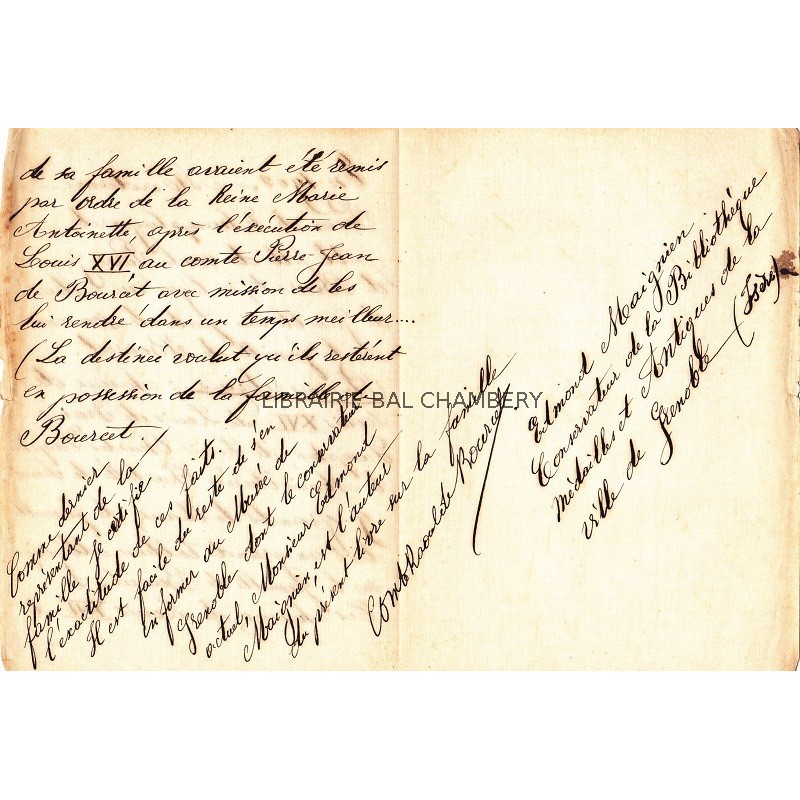 de sa famille avaient été remis
par ordre de la Reine Marie
Antoinette, après l'éxécution de
Louis XVI, au comte Pierre-Jean
de Bourcet avec mission de les
lui rendre dans un temps meilleur....
(La destinée voulut qu'ils restèrent
en possession de la famille de
Bourcet.)
LIBRAIRIE BAL CHAMBERY
Comme dernier
représentant de la
famille je certifie
l'éxactitude de ces faits.
Il est facile du reste de s'en
informer au Musée de
Grenoble dont le conservateur
actuel, Monsieur Edmond
Maignien est l'auteur
du présent livre sur la famille
Comte Raoul de Bourcet
Edmond Maignien
Conservateur de la Bibliothèque
Médailles et Antiques de la
ville de Grenoble (Isère)